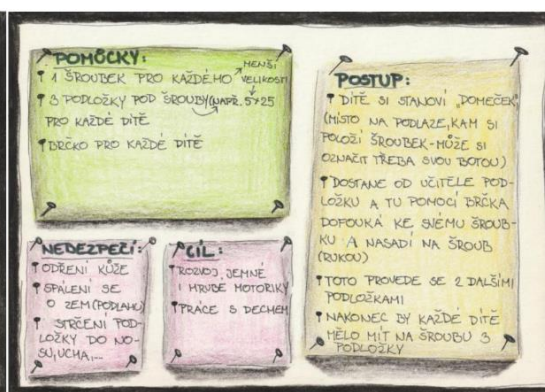 POMŮCKY:
1 ŠROUBEK PRO KAŽDÉHO MENŠÍ VELIKOSTI
3 PODLOŽKY POD ŠROUBY (NAPŘ. 5×25
PRO KAŽDÉ DÍTĚ
BRČKO PRO KAŽDÉ DÍTĚ
NEBEZPEČÍ:
ODŘENÍ KŮŽE
SPÁLENÍ SE
O ZEM (PODLAHU)
STRČENÍ POD-
LOŽKY DO NO-
SU, UCHA,...
CÍL:
ROZVOJ JEMNÉ
I HRUBÉ MOTORIKY
PRÁCE S DECHEM
POSTUP:
DÍTĚ SI STANOVÍ „DOMEČEK"
(MÍSTO NA PODLAZE, KAM SI
POLOŽÍ ŠROUBEK - MŮŽE SI
OZNAČIT TŘEBA SVOU BOTOU)
DOSTANE OD UČITELE POD-
LOŽKU A TU POMOCÍ BRČKA
DOFOUKÁ KE SVÉMU ŠROUB-
KU A NASADÍ NA ŠROUB
(RUKOU)
TOTO PROVEDE SE 2 DALŠÍMI
PODLOŽKAMI
NAKONEC BY KAŽDÉ DÍTĚ
MĚLO MÍT NA ŠROUBU 3
PODLOŽKY